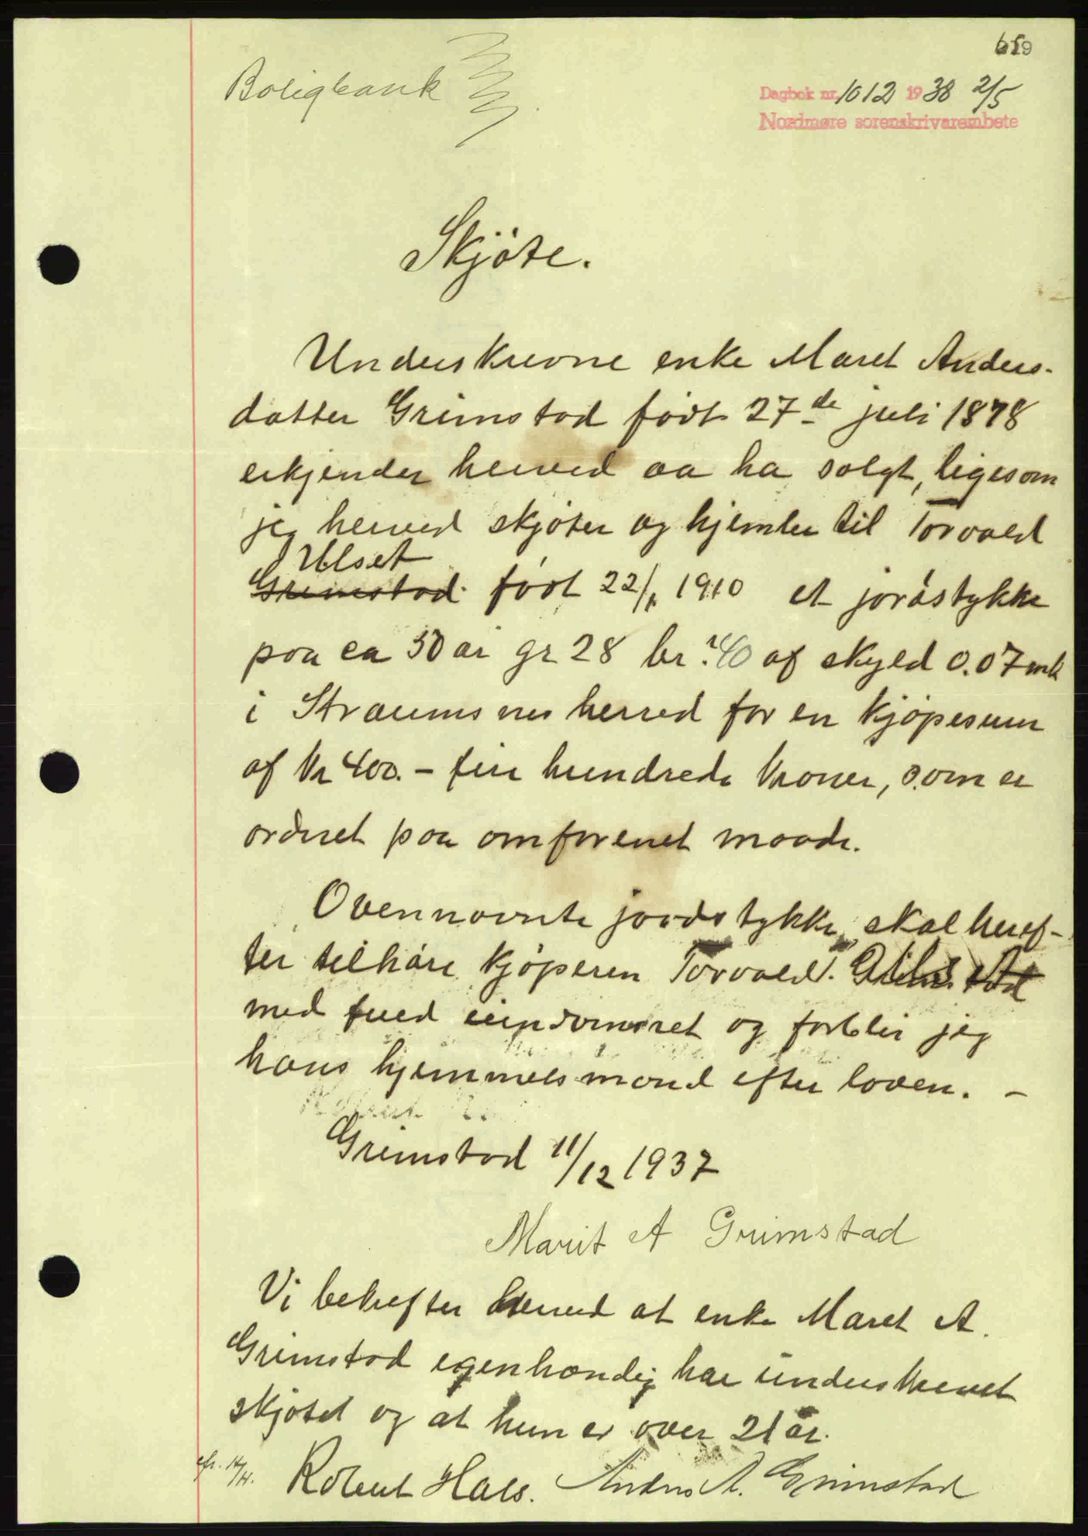 Boligbank
Dagbok nr. 1012 1938 2/5
Nordmøre sorenskrivarembete
Skjøte.
Underskrevne enke Maret Anders-
datter Grimstad født 27de juli 1878
erkjender herved aa ha solgt, ligesom
jeg herved skjøter og hjemler til Torvald
Ulset
Grimstad født 22/1 1910 et jordstykke
paa ca 50 ar gr 28 br. 40 af skyld 0.07 mk
i Straumsnes herred for en kjøpesum
af kr 400.- fire hundrede kroner, som er
ordnet paa omforenet maade.
Ovennævnte jordstykke skal heref-
ter tilhøre kjøperen Torvald Grimstad
med fuld eiendomsret og forblir jeg
hans hjemmelsmand efter loven. –
Grimstad 11/12 1937
Marit A Grimstad
Vi bekrefter herved at enke Maret A.
Grimstad egenhændig har underskrevet
skjøtet og at hun er over 21 år.
Robert Hals. Anders A. Grimstad